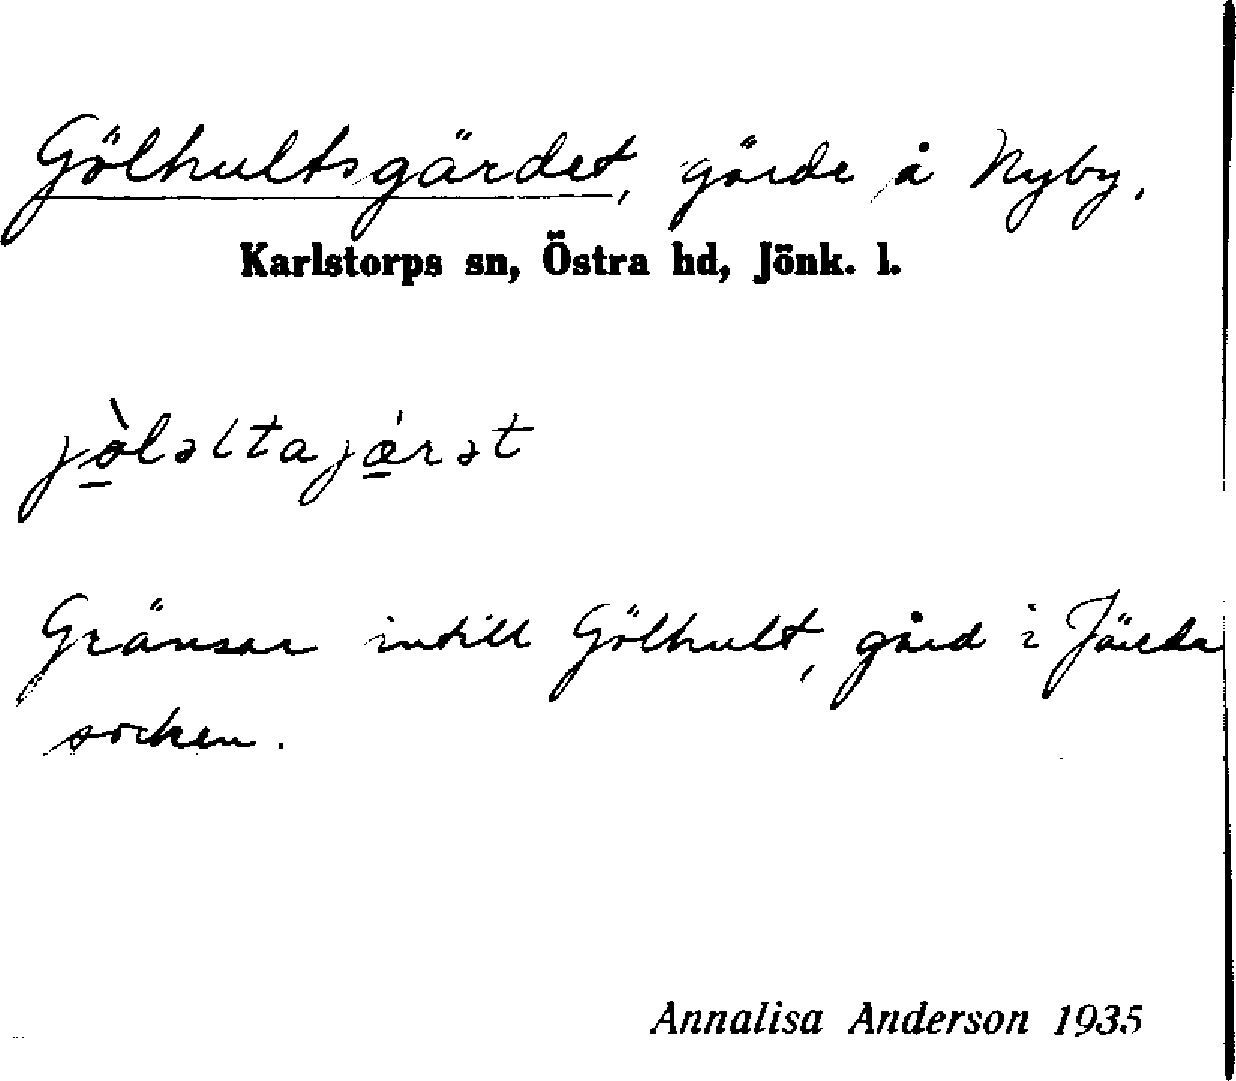 Gölhultsgärdet, gärde å Nyby,
Karlstorps sn, Östra hd, Jönk. l.
jø̀lǝltajǽrǝt
Gränsar intill Gölhult, gård i Järeda
socken.
Annalisa Anderson 1935